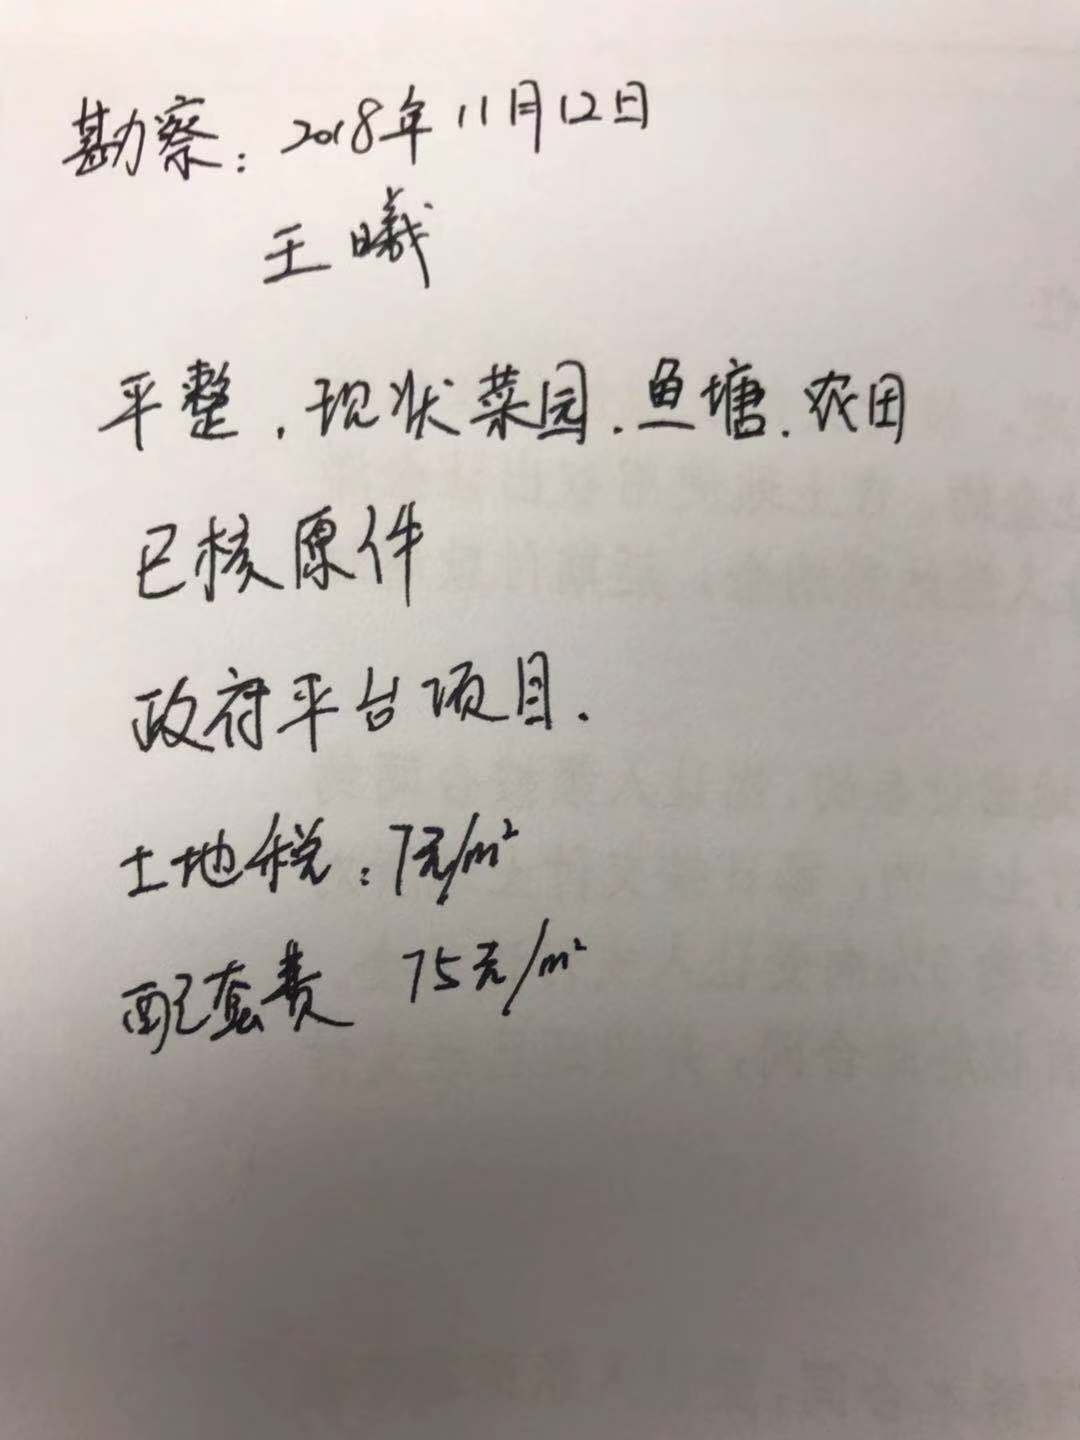 勘察：2018年11月12日
王曦
平整.现状菜园.鱼塘.农田
已核原件
政府平台项目.
土地税：7元/m²
配套费 75元/m²